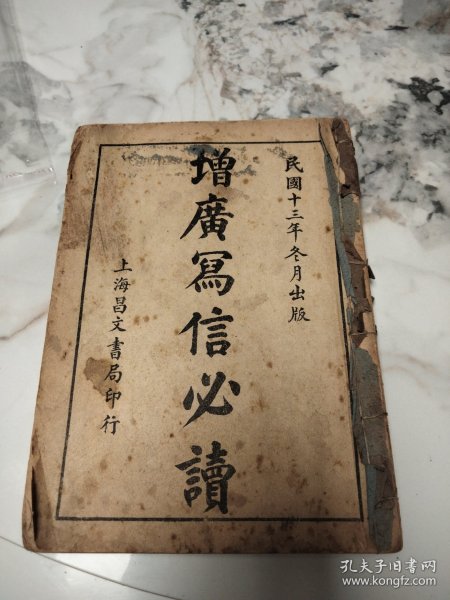 民國十三年冬月出版
增廣冩信必讀
上海昌文書局印行
孔夫子旧书网
www.kongfz.com